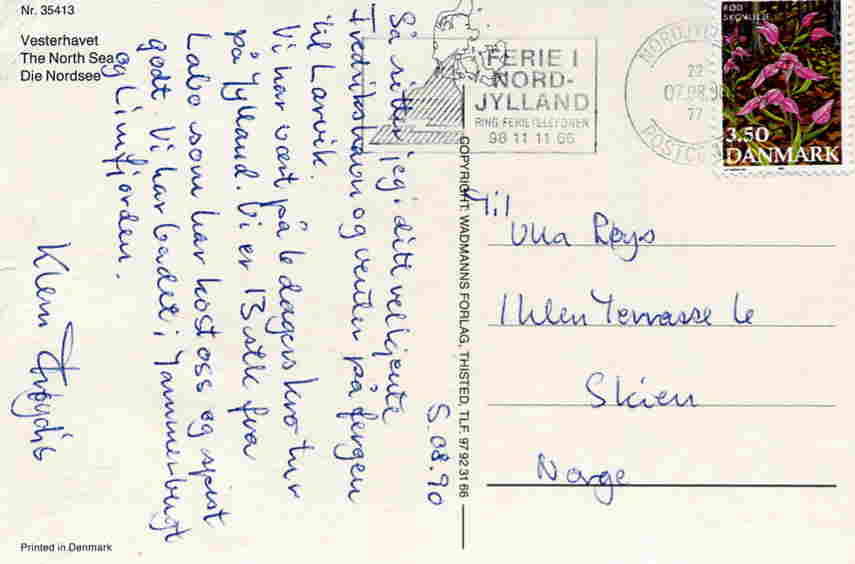 Nr. 35413
Vesterhavet
The North Sea
Die Nordsee
S. 08.90
Så sitter jeg i ditt velkjente
Fredrikshavn og venter på fergen
til Larvik.
Vi har vært på 6 dagers kro tur
på Jylland. Vi er 13 stk fra
Labo som har kost oss og spist
godt. Vi har badet i Jammerbugt
og Limfjorden.
Klem Frøydis
Printed in Denmark
COPYRIGHT: WADMANNS FORLAG, THISTED, TLF. 97 92 31 66
FERIE I
NORD-
JYLLAND
RING FERIETELEFONEN
98 11 11 66
NORDJYL
22
07.08.90
77
POSTC
RØD
SKOVLILJE
3.50
DANMARK
Til
Ulla Røys
Ihlen Terrasse 6
Skien
Norge